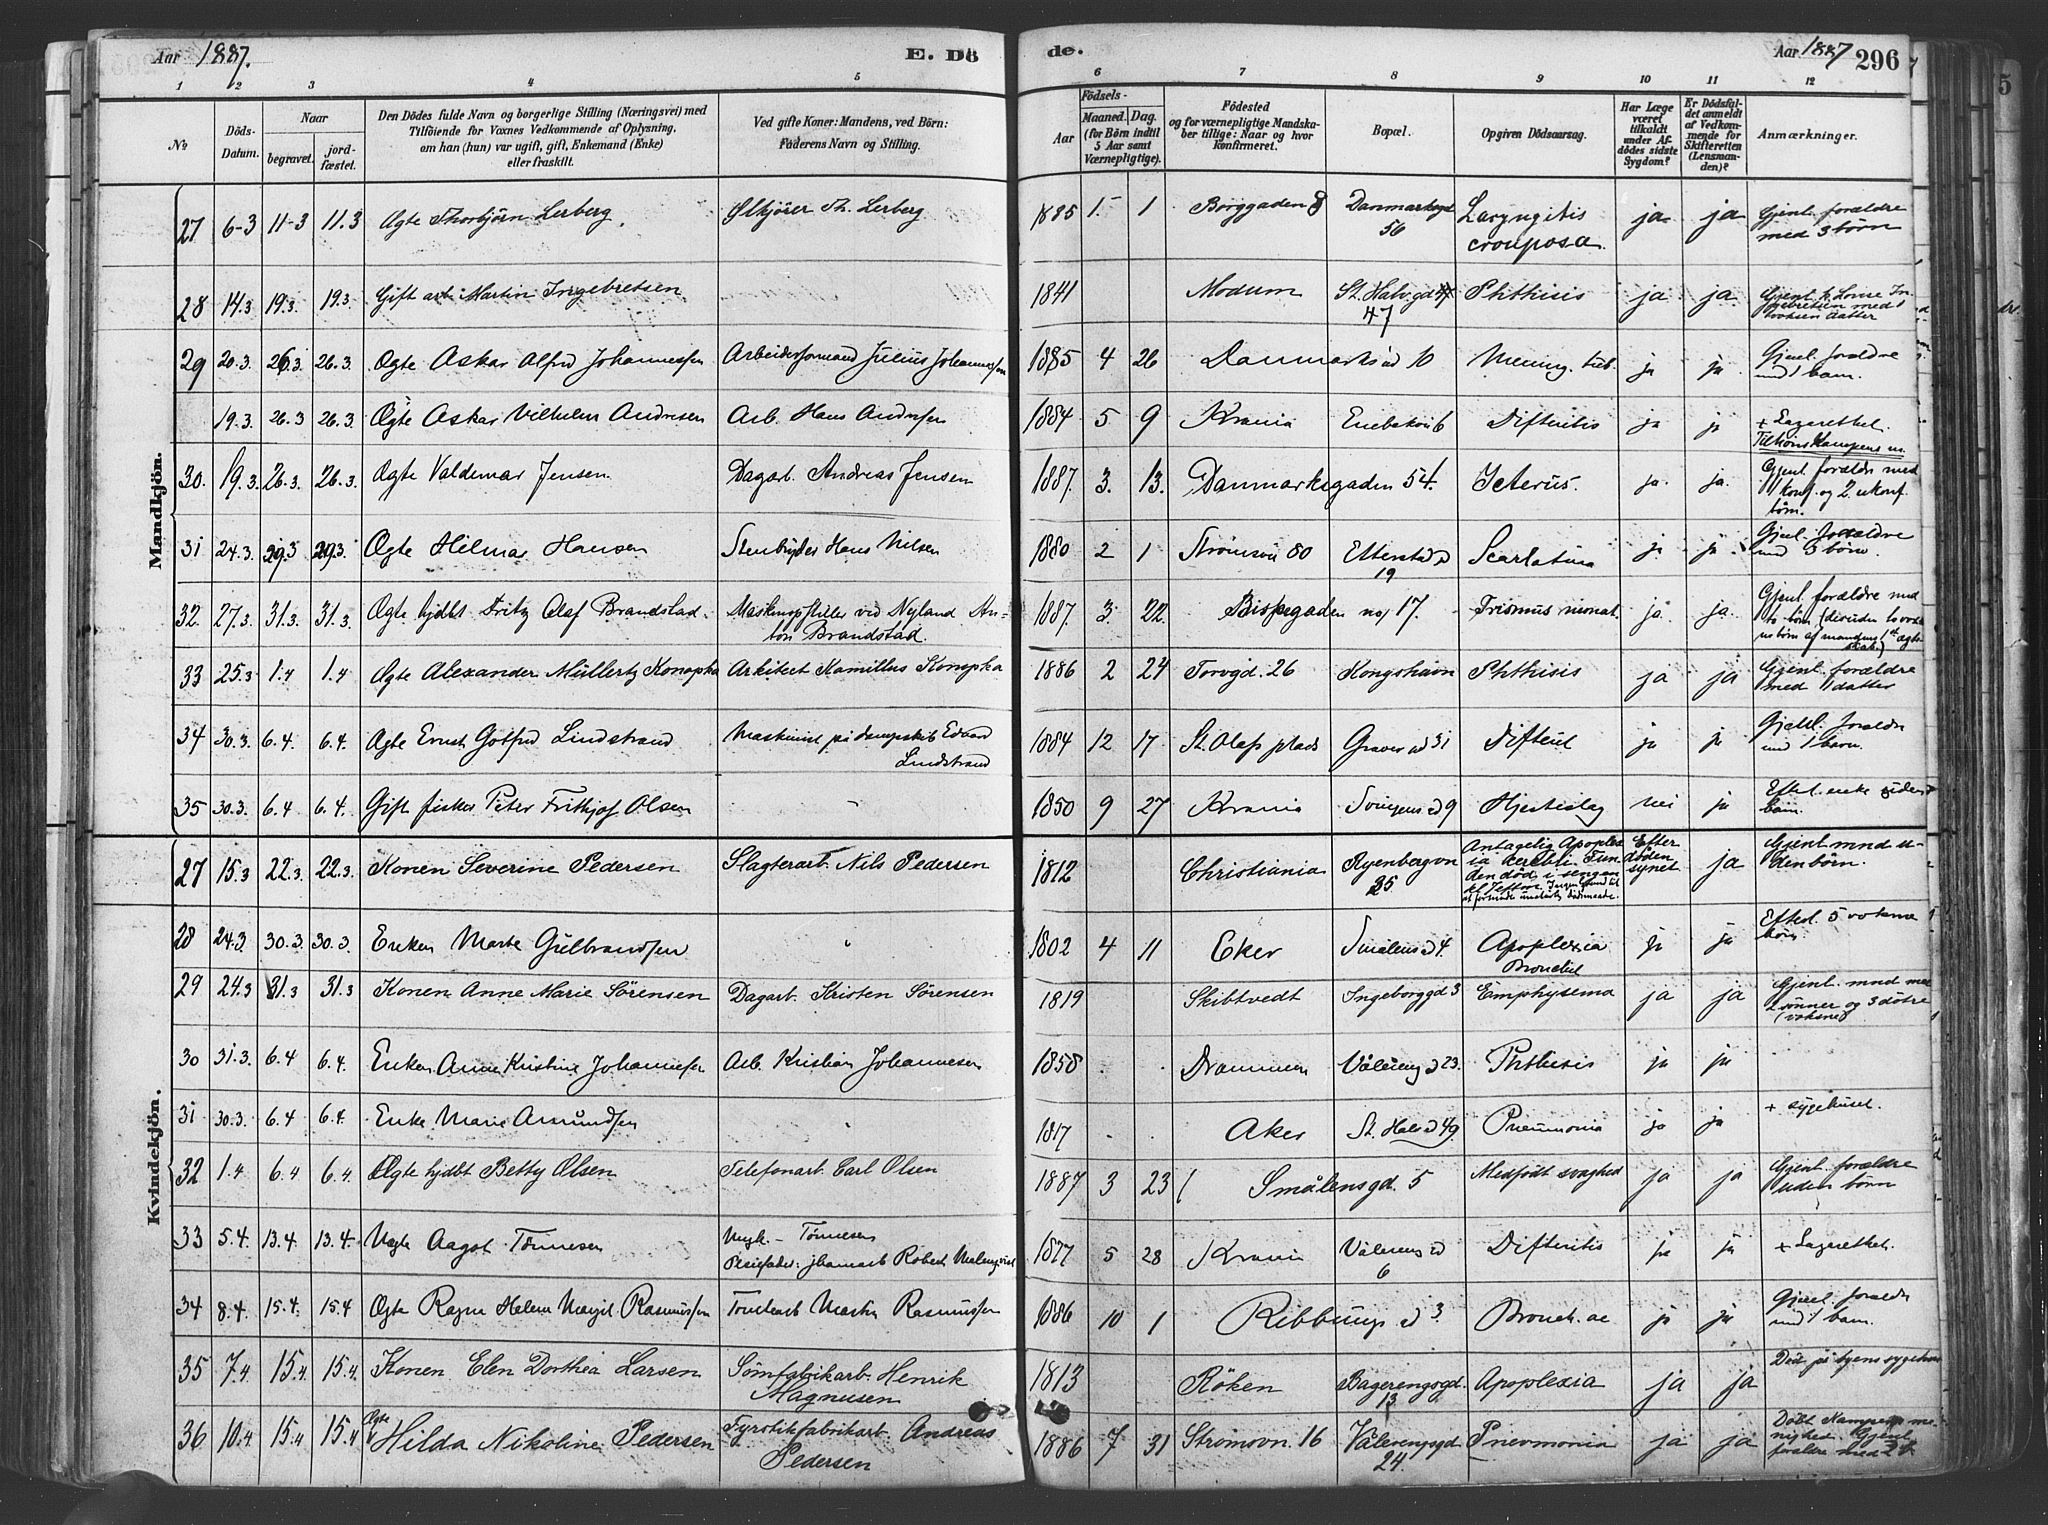 Aar 1887. E. Dö
de. Aar 1887 296
1 2 3 4 5
6 7 8 9 10 11 12
No
Döds-Datum.
Naar
begravet.
jord-fæstet.
Den Dödes fulde Navn og borgerlige Stilling (Næringsvei) med
Tilföiende for Voxnes Vedkommende af Oplysning,
om han (hun) var ugift, gift, Enkemand (Enke)
eller fraskilt.
Ved gifte Koner: Mandens, ved Börn:
Faderens Navn og Stilling.
Födsels-
Aar
Maaned. Dag.
(for Börn indtil
5 Aar samt
Værnepligtige).
Födested
og for værnepligtige Mandska-
ber tillige: Naar og hvor
konfirmeret.
Bopæl.
Opgiven Dödsaarsag.
Har Læge
været
tilkaldt
under Af-
dödes sidste
Sygdom?
Er Dödsfal-
det anmeldt
af Vedkom-
mende for
Skifteretten
(Lensman-
den)?
Anmærkninger.
Mandkjön.
27 6-3 11-3 11.3 Ægte Thorbjörn Lerberg. Ølkjörer Th. Lerberg 1885 1. 1 Borggaden 8 Danmarksgd 56 Laryngitis crouposa. ja ja Gjenl. forældre med 3 börn
28 14.3 19.3. 19.3 Gift arb. Martin Ingebretsen 1841 Modum St. Halv.gd 47 Phthisis ja ja. Gjenl. k. Lovise Ingebretsen med 1 voksen datter
29 20.3. 26.3. 26.3. Ægte Oskar Alfred Johannessen Arbeidsformand Julius Johannessen 1885 4 26 Danmarks gd 10 Mening. tub. ja ja Gjenl. forældre med 1 barn.
19.3. 26.3 26.3. Ægte Oskar Vilhelm Andresen Arb. Hans Andresen 1884 5 9 Krania Enebakvei 6 Difteritis ja ja + Lazarethet. Tilhörer Kampens m.
30. 19.3 26.3 26.3. Ægte Valdemar Jensen. Dagarb. Andreas Jensen 1887. 3. 13. Danmarksgaden 54. Icterus. ja ja. Gjenl. forældre med 1 konf. og 2 ukonf. börn.
31 24.3. 29.3 29.3. Ægte Hilmar Hansen Stenbryder Hans Nilsen 1880 2 1 Strömsvei 80 Etterstad gd 19 Scarlatina ja ja Gjenl. forældre med 3 börn.
32. 27.3. 31.3. 31.3. Ægte hjdbt. Fritz Olaf Brandstad. Maskinopstiller ved Nyland Anton Brandstad. 1887. 3. 22. Bispegaden no 17. Trismus neonat. ja ja.
Gjenl. forældre med to börn (desuden to voksne börn af mandens 1ste ægteskab.)
33 25.3 1.4 1.4 Ægte Alexander Müllertz Konopka Arkitect Kamillus Konopka 1886 2 24 Torvgd. 26 Kongshavn Phthisis ja ja Gjenl. forældre med 1 datter
34 30.3. 6.4. 6.4. Ægte Ernst Gotfred Lindstrand Maskinist på dampskib Edvard Lindstrand 1884 12 17 St. Olafs plads Graver gd 31 Difterit ja ja Gjenl. forældre med 1 barn.
35 30.3. 6.4 6.4. Gift fisker Peter Frithjof Olsen 1850 9 27 Krania Svingens gd 9 Hjerteslag nei ja Efterl. enke uden barn.
Kvindekjön.
27 15.3 22.3. 22.3. Konen Severine Pedersen Slagterarb. Nils Pedersen 1812 Christiania Ryenbergvn 25 Antagelig Apoplexia cerebri. Funden död i sengen Efter döden synet ja Gjenl. mnd uden börn.
28 24.3. 30.3. 30.3. Enken Marte Gulbrandsen 1802 4 11 Eker Smålens gd 4. Apoplexia ja ja Efterl. 5 voksne börn
29 24.3 31.3 31.3 Konen Anne Marie Sörensen Dagarb. Kristen Sörensen 1819 Skibtvedt Ingeborggd 3 Bronchit Emphysema ja ja Gjenl. mnd med 2 sönner og 3 dötre (voksne)
30 31.3. 6.4 6.4. Enken Anne Kristine Johannesen Arb. Kristian Johannesen 1858 Drammen Våleieng gd 23. Phthisis ja ja
31 30.3. 6.4 6.4. Enke Marie Amundsen 1817 Aker St. Halv gd 49 Pneumonia ja ja + sygehuset.
32 1.4. 6.4 6.4. Ægte hjdbt Betty Olsen Telefonarb. Carl Olsen 1887 3 23 Smålensgd. 5 Medfödt svaghed ja ja Gjenl. forældre uden börn
33 5.4. 13.4 13.4. Uægte Aagot Tönnesen Ungk. - Tönnesen Pleiefader: Robert Malmqvist 1877 5 28 Krania Vålereng gd 6 Difteritis ja ja + Lazarethet.
34 8.4. 15.4. 15.4 Ægte Ragna Helene Margit Rasmussen Tomtearb Martin Rasmussen 1886 10 1 Ribbungs gd 3. Bronch. ac ja ja Gjenl. forældre med 1 barn.
35 7.4 15.4 15.4. Konen Elen Dorthea Larsen Sömfabrikarb. Henrik Magnusen 1813 Röken Bagerengsgd. 13. Apoplexia ja ja Död på byens sygehus
36 10.4. 15.4 15.4 Ægte Hilda Nikoline Pedersen Fyrstikfabrikarb. Andreas Pedersen 1886 7 31 Strömsvn. 16 Vålerengsgd. 24. Pnevmonia ja ja Döbt Kampens menighed. Gjenl. forældre med 2 b.